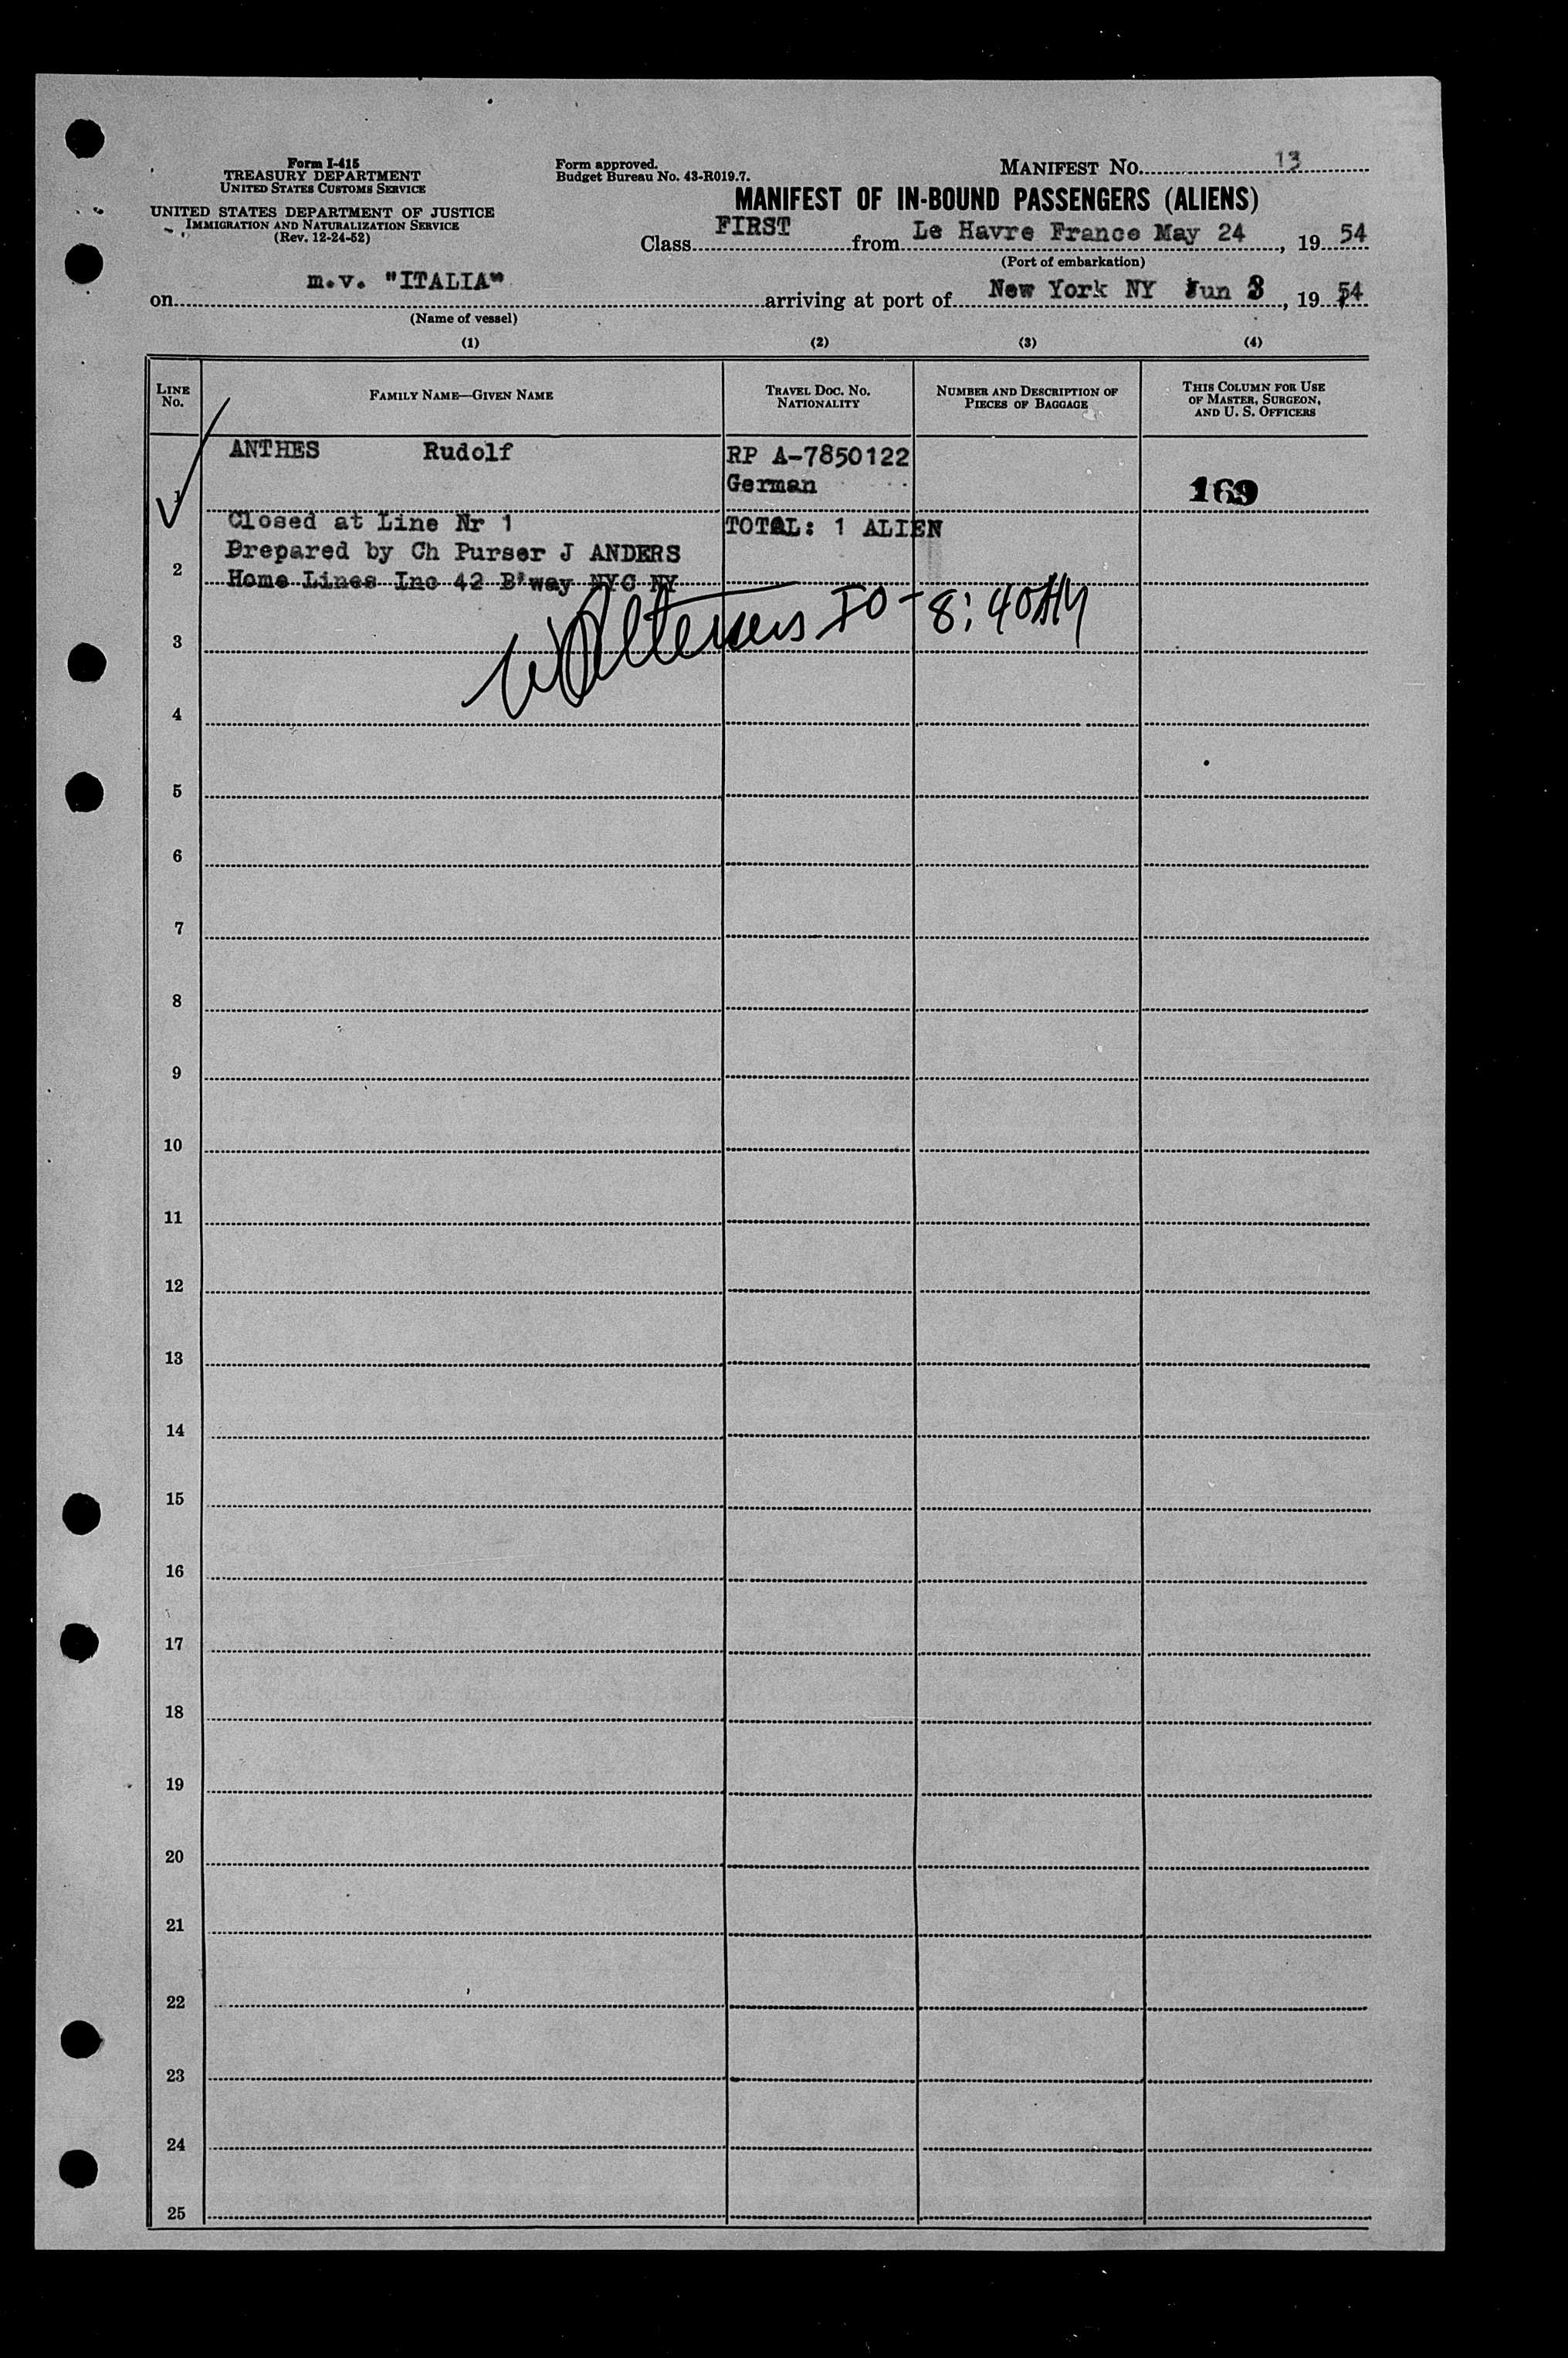 Form I-415
TREASURY DEPARTMENT
UNITED STATES CUSTOMS SERVICE
UNITED STATES DEPARTMENT OF JUSTICE
IMMIGRATION AND NATURALIZATION SERVICE
(Rev. 12-24-52)
Form approved.
Budget Bureau No. 43-R019.7.
MANIFEST NO. 13
MANIFEST OF IN-BOUND PASSENGERS (ALIENS)
Class FIRST from Le Havre France May 24, 1954
(Port of embarkation)
on m.v. "ITALIA" arriving at port of New York NY Jun 3, 1954
(Name of vessel)
(1) (2) (3) (4)
LINE No.
FAMILY NAME—GIVEN NAME
TRAVEL DOC. NO. NATIONALITY
NUMBER AND DESCRIPTION OF PIECES OF BAGGAGE
THIS COLUMN FOR USE OF MASTER, SURGEON, AND U. S. OFFICERS
1 ANTHES Rudolf RP A-7850122
German 169
Closed at Line Nr 1 TOTAL: 1 ALIEN
Prepared by Ch Purser J ANDERS
2 Home Lines Inc 42 B'way NYC NY
IO - 8:40AM
3
4
5
6
7
8
9
10
11
12
13
14
15
16
17
18
19
20
21
22
23
24
25